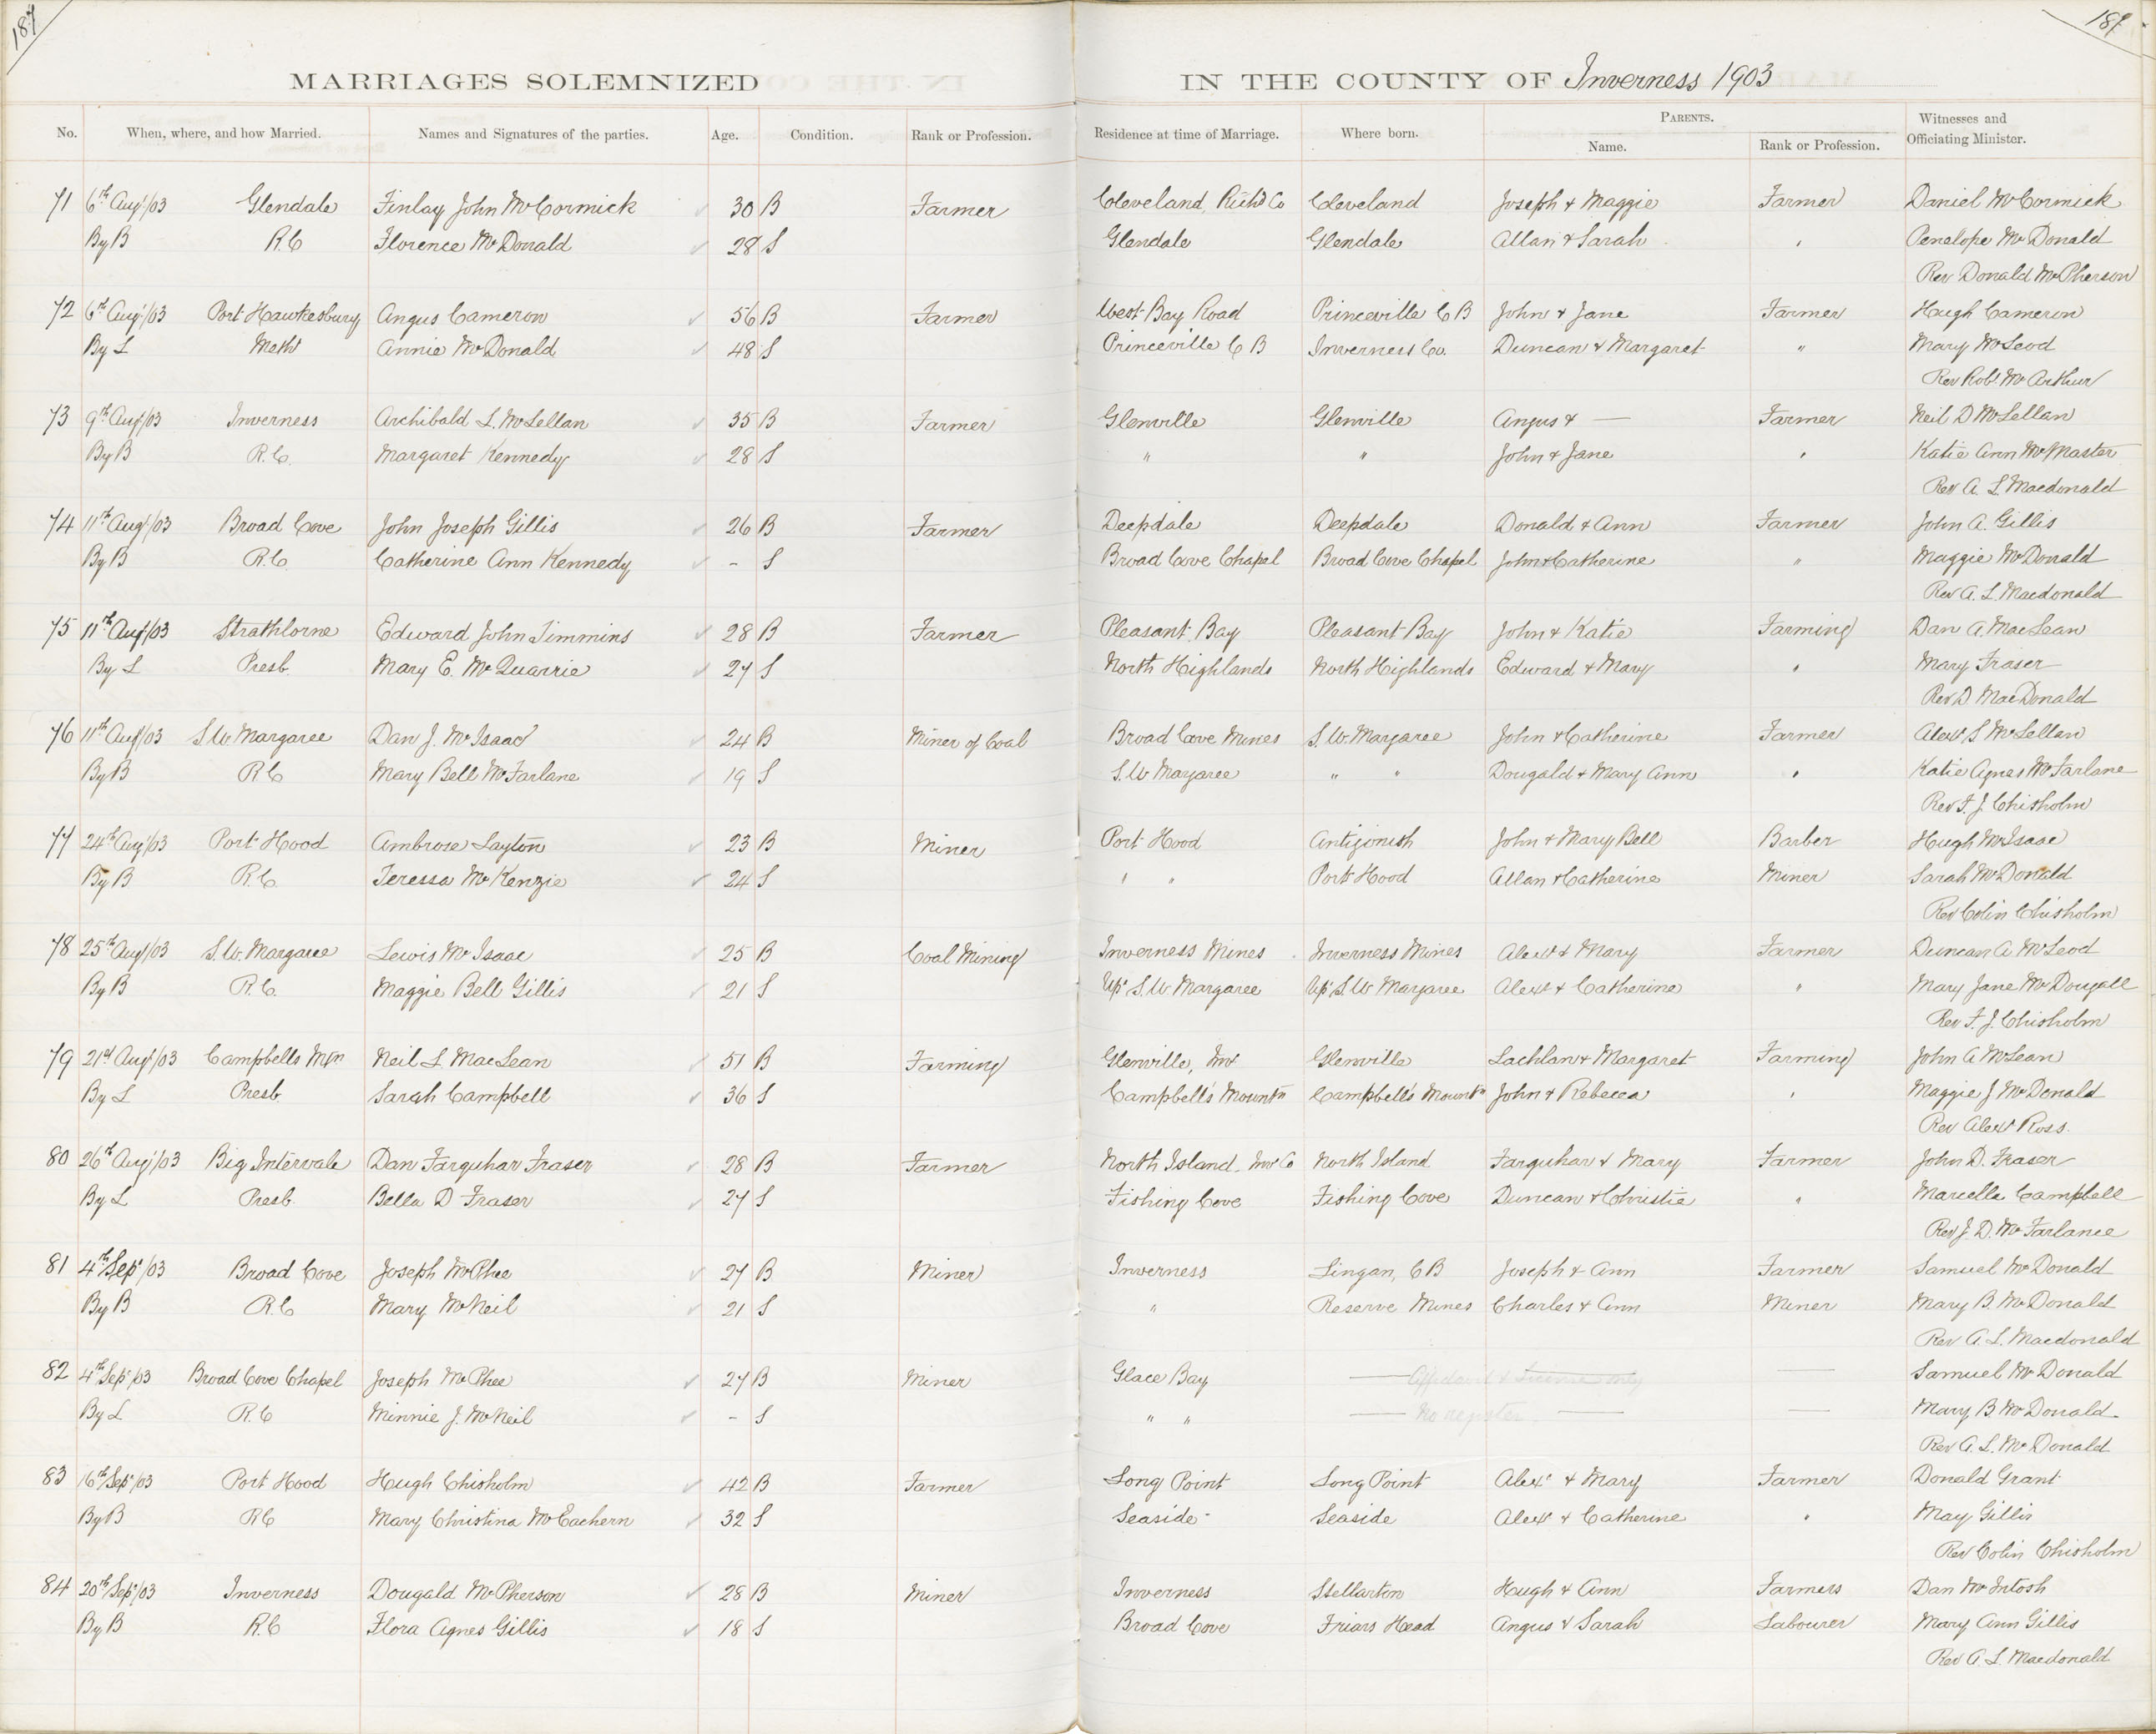 187 187
MARRIAGES SOLEMNIZED IN THE COUNTY OF Inverness 1903
No. When, where, and how Married. Names and Signatures of the parties. Age. Condition. Rank or Profession. Residence at time of Marriage. Where born. PARENTS. Name. Rank or Profession. Witnesses and Officiating Minister.
71 6th Aug/03 Glendale Finlay John McCormick 30 B Farmer Cleveland, Rich'd Co Cleveland Joseph & Maggie Farmer Daniel McCormick
By B R.C Florence McDonald 28 S Glendale Glendale Allan & Sarah " Penelope McDonald
Rev Donald McPherson
72 6th Aug/03 Port Hawkesbury Angus Cameron 56 B Farmer West Bay Road Princeville C B John & Jane Farmer Hugh Cameron
By L Meth Annie McDonald 48 S Princeville C B Inverness Co. Duncan & Margaret " Mary McLeod
Rev Robt McArthur
73 9th Aug/03 Inverness Archibald L. McLellan 35 B Farmer Glenville Glenville Angus & — Farmer Neil D McLellan
By B R.C. Margaret Kennedy 28 S " " John & Jane " Katie Ann McMaster
Rev A. L. Macdonald
74 11th Aug/03 Broad Cove John Joseph Gillis 26 B Farmer Deepdale Deepdale Donald & Ann Farmer John A. Gillis
By B R.C. Catherine Ann Kennedy - S Broad Cove Chapel Broad Cove Chapel John & Catherine " Maggie McDonald
Rev A. L. Macdonald
75 11th Aug/03 Strathlorne Edward John Timmins 28 B Farmer Pleasant Bay Pleasant Bay John & Katie Farming Dan A. MacLean
By L Presb. Mary E. McQuarrie 27 S North Highlands North Highlands Edward & Mary " Mary Fraser
Rev D. MacDonald
76 11th Aug/03 S.W. Margaree Dan J. McIsaac 24 B Miner of Coal Broad Cove Mines S.W. Margaree John & Catherine Farmer Alexr S McLellan
By B R C Mary Bell McFarlane 19 S S.W Margaree " " Dougald & Mary Ann " Katie Agnes McFarlane
Rev F. J. Chisholm
77 24th Aug/03 Port Hood Ambrose Layton 23 B Miner Port Hood Antigonish John & Mary Bell Barber Hugh McIsaac
By B R.C. Teressa McKenzie 24 S " " Port Hood Allan & Catherine Miner Sarah McDonald
Rev Colin Chisholm
78 25th Aug/03 S.W. Margaree Lewis McIsaac 25 B Coal Mining Inverness Mines Inverness Mines Alexr & Mary Farmer Duncan A McLeod
By B R.C. Maggie Bell Gillis 21 S Upr S.W Margaree Upr S.W Margaree Alexr & Catherine " Mary Jane McDougall
Rev F. J. Chisholm
79 21st Aug/03 Campbells Mtn Neil L MacLean 51 B Farming Glenville, Inv Glenville Lachlan & Margaret Farming John A McLean
By L Presb. Sarah Campbell 36 S Campbell's Mountn Campbell's Mountn John & Rebecca " Maggie J McDonald
Rev Alexr Ross.
80 26th Aug/03 Big Intervale Dan Farquhar Fraser 28 B Farmer North Island, Inv Co North Island Farquhar & Mary Farmer John D. Fraser
By L Presb. Bella D Fraser 27 S Fishing Cove Fishing Cove Duncan & Christie " Marcella Campbell
Rev J. D. McFarlanee
81 4th Sep/03 Broad Cove Joseph McPhee 27 B Miner Inverness Lingan, C B Joseph & Ann Farmer Samuel McDonald
By B R.C Mary McNeil 21 S " Reserve Mines Charles & Ann Miner Mary B. McDonald
Rev A. L. Macdonald
82 4th Sep/03 Broad Cove Chapel Joseph McPhee 27 B Miner Glace Bay — Affidavit & License only — Samuel McDonald
By L R.C Minnie J. McNeil - S " " — No register — — Mary B. McDonald
Rev A. L. McDonald
83 16th Sep/03 Port Hood Hugh Chisholm 42 B Farmer Long Point Long Point Alexr & Mary Farmer Donald Grant
By B R C Mary Christina McEachern 32 S Seaside Seaside Alexr & Catherine " May Gillis
Rev Colin Chisholm
84 20th Sep/03 Inverness Dougald McPherson 28 B Miner Inverness Stellarton Hugh & Ann Farmers Dan McIntosh
By B R.C Flora Agnes Gillis 18 S Broad Cove Friars Head Angus & Sarah Labourer Mary Ann Gillis
Rev A. L. Macdonald